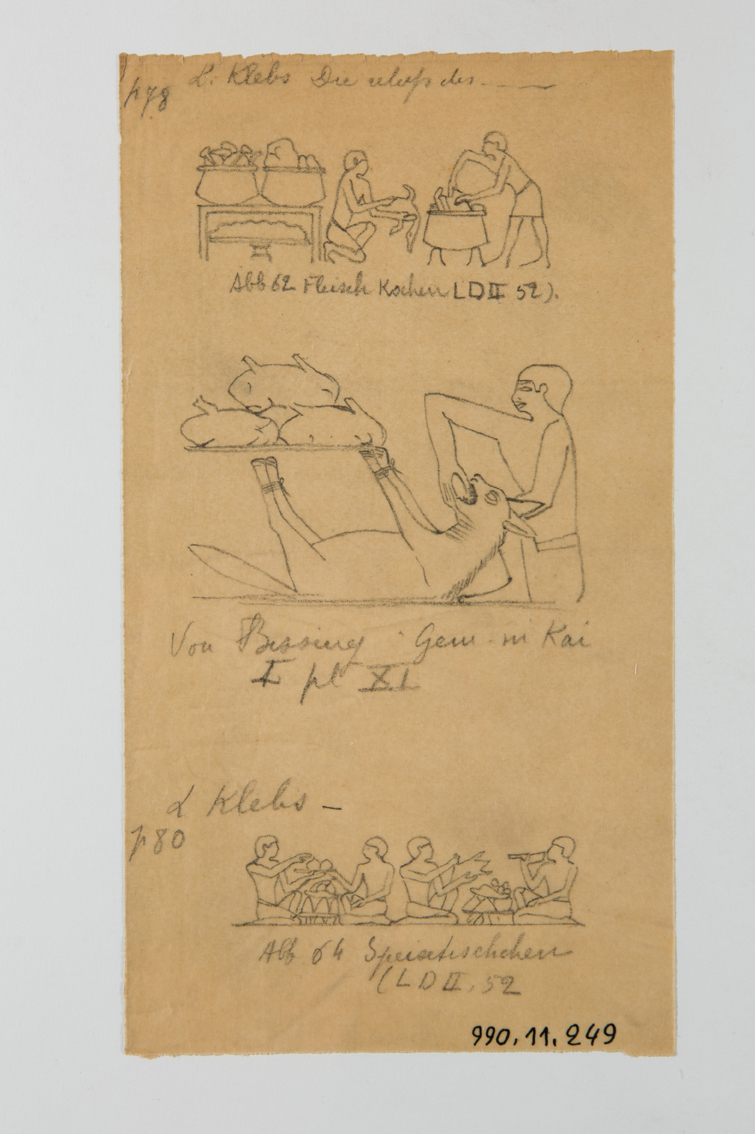 p78 L. Klebs Die reliefs des
Abb 62 Fleisch Kochen LD II 52).
Von Bissing · Gem-ni Kai
I pl XL
L Klebs –
p 80
Abb 64 Speisetischchen
(LD II, 52
990.11.249